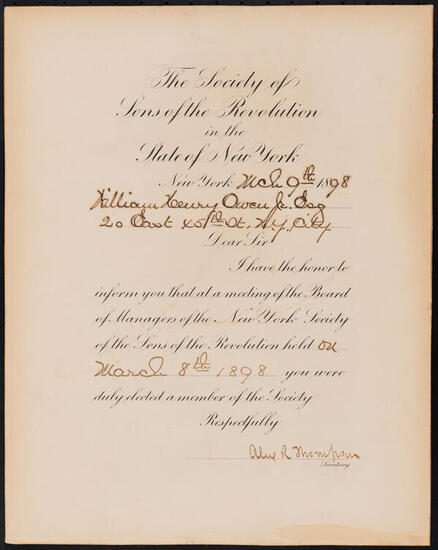 The Society of
Sons of the Revolution
in the
State of New York
New York Mch 9th 1898
William Henry Owen Jr. Esq
20 East 45th St. N.Y. City
Dear Sir
I have the honor to
inform you that at a meeting of the Board
of Managers of the New York Society
of the Sons of the Revolution held on
March 8th 1898 you were
duly elected a member of the Society
Respectfully
Alex R. Thompson
Secretary